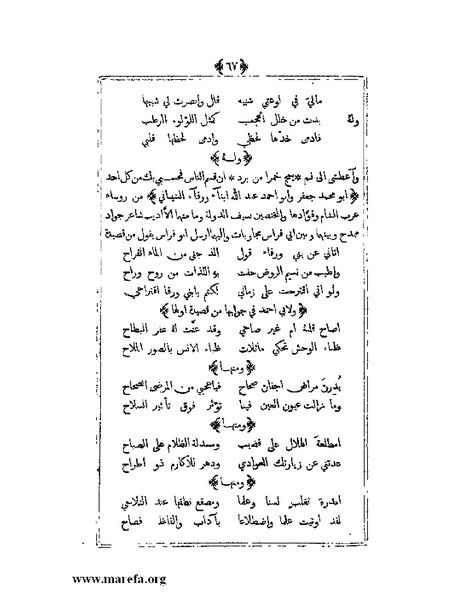 ﴿ ٦٧ ﴾
مالي في لوعتي شبيه قال وأبصرت لي شبيها
وله بدت من خلال الحجب كمثل اللؤلوء الرطب
فادمى خدها لحظي وادمى لحظها قلبي
﴿ وله ﴾
واعطشي الى فم يمج خمرا من برد * ان قسم الناس فحسبي بك من كل احد
﴿ ابو محمد جعفر وأبو احمد عبد الله ابناء ورقاء الشيباني ﴾ من روساء
عرب الشام وقوادها والمختصين بسيف الدولة وما منهما الا اديب شاعر جواد
ممدح وبينهما وبين ابي فراس مجاوبات واليهما ارسل ابو فراس يقول من قصيدة
اتاني عن بني ورقاء قول الذ جنى من الماء القراح
واطيب من نسيم الروض حفت به اللذات من روح وراح
ولو اني اقترحت على زماني لكنتم يا بني ورقا اقتراحي
﴿ ولابي احمد في جوابها من قصيدة اولها ﴾
اصاح قلبه ام غير صاحي وقد عنت له عفر البطاح
ظباء الوحش تحكي ماثلات ظباء الانس بالصور الملاح
﴿ ومنها ﴾
يدرن مراض اجفان صحاح فياعجبي من المرضى الصحاح
وما زالت عيون العين فينا تؤثر فوق تأثير السلاح
﴿ ومنها ﴾
امطلعة الهلال على قضيب ومسدلة الظلام على الصباح
عدتني عن زيارتك العوادي ودهر للاكارم ذو اطراح
﴿ ومنها ﴾
تغلب لسنا وعلما ومصقع نطقها عند التلاحي
لقد اوتيت علما واضطلاعا بآداب والفاظ فصاح
www.marefa.org